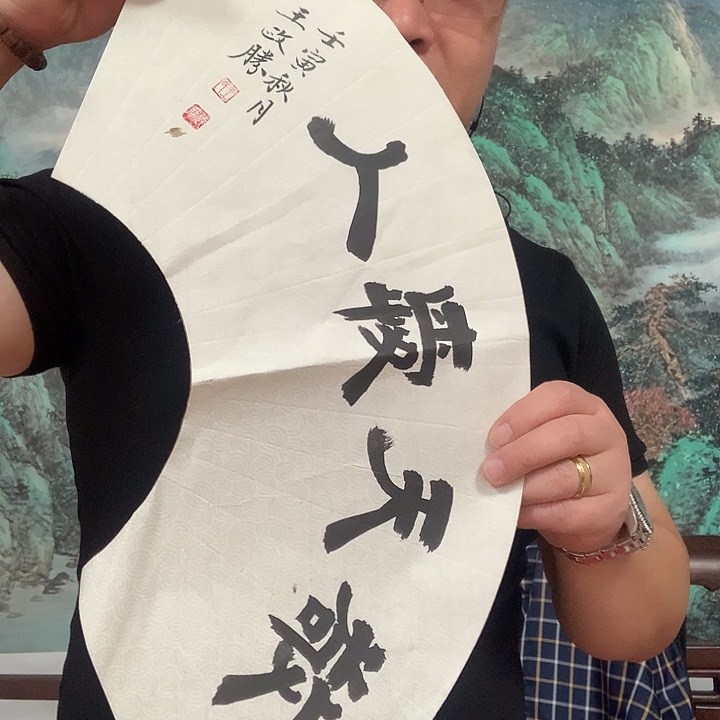 敬天愛人
壬寅秋月
王政勝